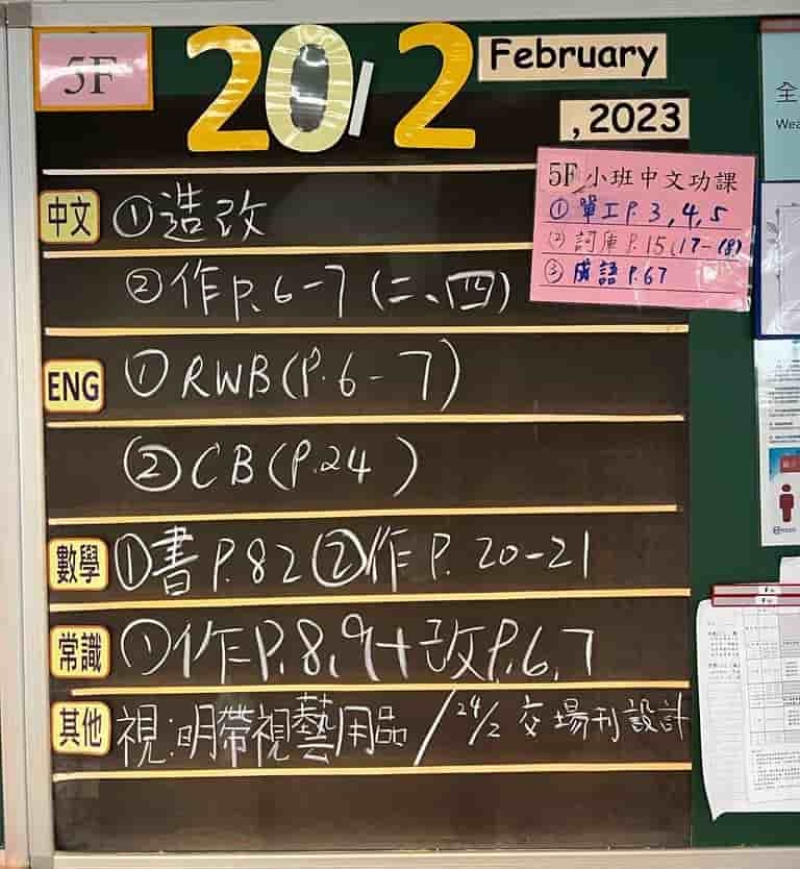 5F
20/2
February
, 2023
5F 小班中文功課
① 單工 P. 3, 4, 5
② 詞庫 P. 15 (17-18)
③ 成語 P. 67
中文 ① 造改
② 作 P. 6-7 (二、四)
ENG ① RWB (P. 6-7)
② CB (P. 24)
數學 ① 書 P. 82 ② 作 P. 20-21
常識 ① 作 P. 8, 9 + 改 P. 6, 7
其他 視:明帶視藝用品 / 24/2 交場刊設計
全
Wea